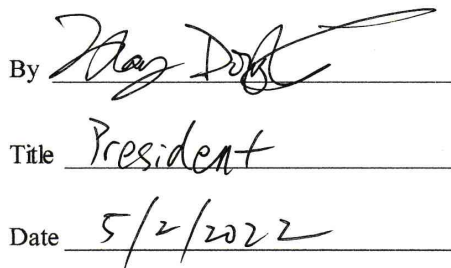 By
Title President
Date 5/2/2022